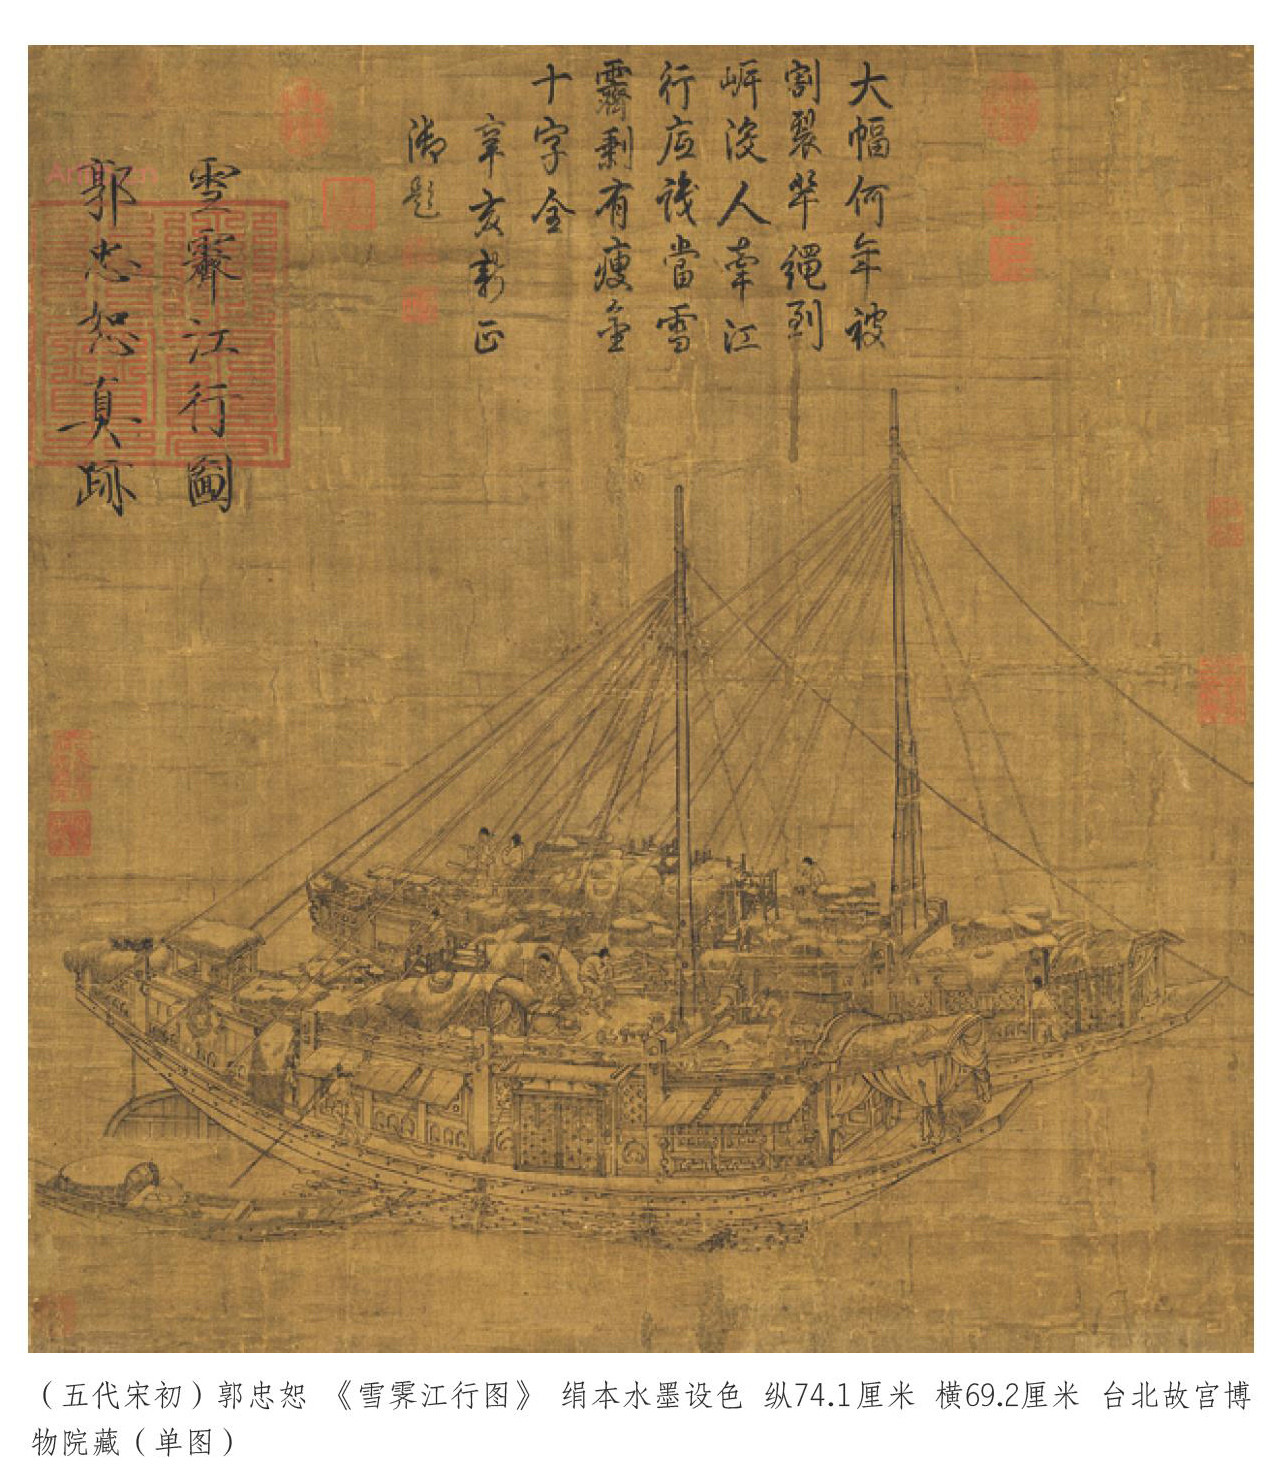 大幅何年被
割裂牽繩到
岍没人牽江
行应識當雪
霽剩有瘦金
十字全
辛亥新正
御題
雪霽江行圖
郭忠恕真跡
（五代宋初）郭忠恕 《雪霁江行图》 绢本水墨设色 纵74.1厘米 横69.2厘米 台北故宫博
物院藏（单图）